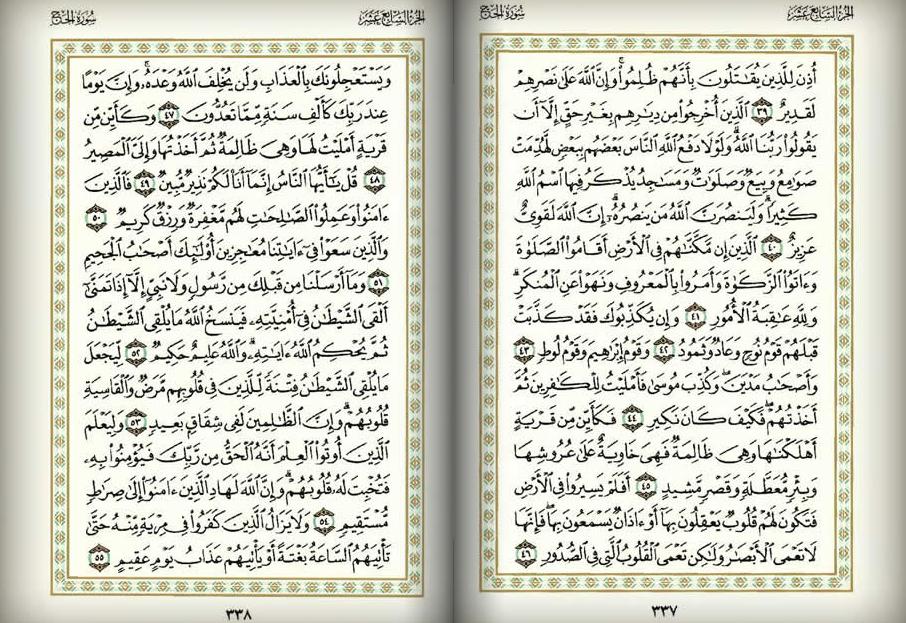 الجزء السابع عشر
سورة الحج
أُذِنَ لِلَّذِينَ يُقَٰتَلُونَ بِأَنَّهُمْ ظُلِمُوا۟ ۚ وَإِنَّ ٱللَّهَ عَلَىٰ نَصْرِهِمْ
لَقَدِيرٌ ٣٩ ٱلَّذِينَ أُخْرِجُوا۟ مِن دِيَٰرِهِم بِغَيْرِ حَقٍّ إِلَّآ أَن
يَقُولُوا۟ رَبُّنَا ٱللَّهُ ۗ وَلَوْلَا دَفْعُ ٱللَّهِ ٱلنَّاسَ بَعْضَهُم بِبَعْضٍ لَّهُدِّمَتْ
صَوَٰمِعُ وَبِيَعٌ وَصَلَوَٰتٌ وَمَسَٰجِدُ يُذْكَرُ فِيهَا ٱسْمُ ٱللَّهِ
كَثِيرًا ۗ وَلَيَنصُرَنَّ ٱللَّهُ مَن يَنصُرُهُۥٓ ۗ إِنَّ ٱللَّهَ لَقَوِىٌّ
عَزِيزٌ ٤٠ ٱلَّذِينَ إِن مَّكَّنَّٰهُمْ فِى ٱلْأَرْضِ أَقَامُوا۟ ٱلصَّلَوٰةَ
وَءَاتَوُا۟ ٱلزَّكَوٰةَ وَأَمَرُوا۟ بِٱلْمَعْرُوفِ وَنَهَوْا۟ عَنِ ٱلْمُنكَرِ ۗ
وَلِلَّهِ عَٰقِبَةُ ٱلْأُمُورِ ٤١ وَإِن يُكَذِّبُوكَ فَقَدْ كَذَّبَتْ
قَبْلَهُمْ قَوْمُ نُوحٍ وَعَادٌ وَثَمُودُ ٤٢ وَقَوْمُ إِبْرَٰهِيمَ وَقَوْمُ لُوطٍ ٤٣
وَأَصْحَٰبُ مَدْيَنَ ۖ وَكُذِّبَ مُوسَىٰ فَأَمْلَيْتُ لِلْكَٰفِرِينَ ثُمَّ
أَخَذْتُهُمْ ۖ فَكَيْفَ كَانَ نَكِيرِ ٤٤ فَكَأَيِّن مِّن قَرْيَةٍ
أَهْلَكْنَٰهَا وَهِىَ ظَالِمَةٌ فَهِىَ خَاوِيَةٌ عَلَىٰ عُرُوشِهَا
وَبِئْرٍ مُّعَطَّلَةٍ وَقَصْرٍ مَّشِيدٍ ٤٥ أَفَلَمْ يَسِيرُوا۟ فِى ٱلْأَرْضِ
فَتَكُونَ لَهُمْ قُلُوبٌ يَعْقِلُونَ بِهَآ أَوْ ءَاذَانٌ يَسْمَعُونَ بِهَا ۖ فَإِنَّهَا
لَا تَعْمَى ٱلْأَبْصَٰرُ وَلَٰكِن تَعْمَى ٱلْقُلُوبُ ٱلَّتِى فِى ٱلصُّدُورِ ٤٦
٣٣٧
الجزء السابع عشر
سورة الحج
وَيَسْتَعْجِلُونَكَ بِٱلْعَذَابِ وَلَن يُخْلِفَ ٱللَّهُ وَعْدَهُۥ ۚ وَإِنَّ يَوْمًا
عِندَ رَبِّكَ كَأَلْفِ سَنَةٍ مِّمَّا تَعُدُّونَ ٤٧ وَكَأَيِّن مِّن
قَرْيَةٍ أَمْلَيْتُ لَهَا وَهِىَ ظَالِمَةٌ ثُمَّ أَخَذْتُهَا وَإِلَىَّ ٱلْمَصِيرُ
٤٨ قُلْ يَٰٓأَيُّهَا ٱلنَّاسُ إِنَّمَآ أَنَا۠ لَكُمْ نَذِيرٌ مُّبِينٌ ٤٩ فَٱلَّذِينَ
ءَامَنُوا۟ وَعَمِلُوا۟ ٱلصَّٰلِحَٰتِ لَهُم مَّغْفِرَةٌ وَرِزْقٌ كَرِيمٌ ٥٠
وَٱلَّذِينَ سَعَوْا۟ فِىٓ ءَايَٰتِنَا مُعَٰجِزِينَ أُو۟لَٰٓئِكَ أَصْحَٰبُ ٱلْجَحِيمِ
٥١ وَمَآ أَرْسَلْنَا مِن قَبْلِكَ مِن رَّسُولٍ وَلَا نَبِىٍّ إِلَّآ إِذَا تَمَنَّىٰٓ
أَلْقَى ٱلشَّيْطَٰنُ فِىٓ أُمْنِيَّتِهِۦ فَيَنسَخُ ٱللَّهُ مَا يُلْقِى ٱلشَّيْطَٰنُ
ثُمَّ يُحْكِمُ ٱللَّهُ ءَايَٰتِهِۦ ۗ وَٱللَّهُ عَلِيمٌ حَكِيمٌ ٥٢ لِّيَجْعَلَ
مَا يُلْقِى ٱلشَّيْطَٰنُ فِتْنَةً لِّلَّذِينَ فِى قُلُوبِهِم مَّرَضٌ وَٱلْقَاسِيَةِ
قُلُوبُهُمْ ۗ وَإِنَّ ٱلظَّٰلِمِينَ لَفِى شِقَاقٍۭ بَعِيدٍ ٥٣ وَلِيَعْلَمَ
ٱلَّذِينَ أُوتُوا۟ ٱلْعِلْمَ أَنَّهُ ٱلْحَقُّ مِن رَّبِّكَ فَيُؤْمِنُوا۟ بِهِۦ
فَتُخْبِتَ لَهُۥ قُلُوبُهُمْ ۗ وَإِنَّ ٱللَّهَ لَهَادِ ٱلَّذِينَ ءَامَنُوٓا۟ إِلَىٰ صِرَٰطٍ
مُّسْتَقِيمٍ ٥٤ وَلَا يَزَالُ ٱلَّذِينَ كَفَرُوا۟ فِى مِرْيَةٍ مِّنْهُ حَتَّىٰ
تَأْتِيَهُمُ ٱلسَّاعَةُ بَغْتَةً أَوْ يَأْتِيَهُمْ عَذَابُ يَوْمٍ عَقِيمٍ ٥٥
٣٣٨